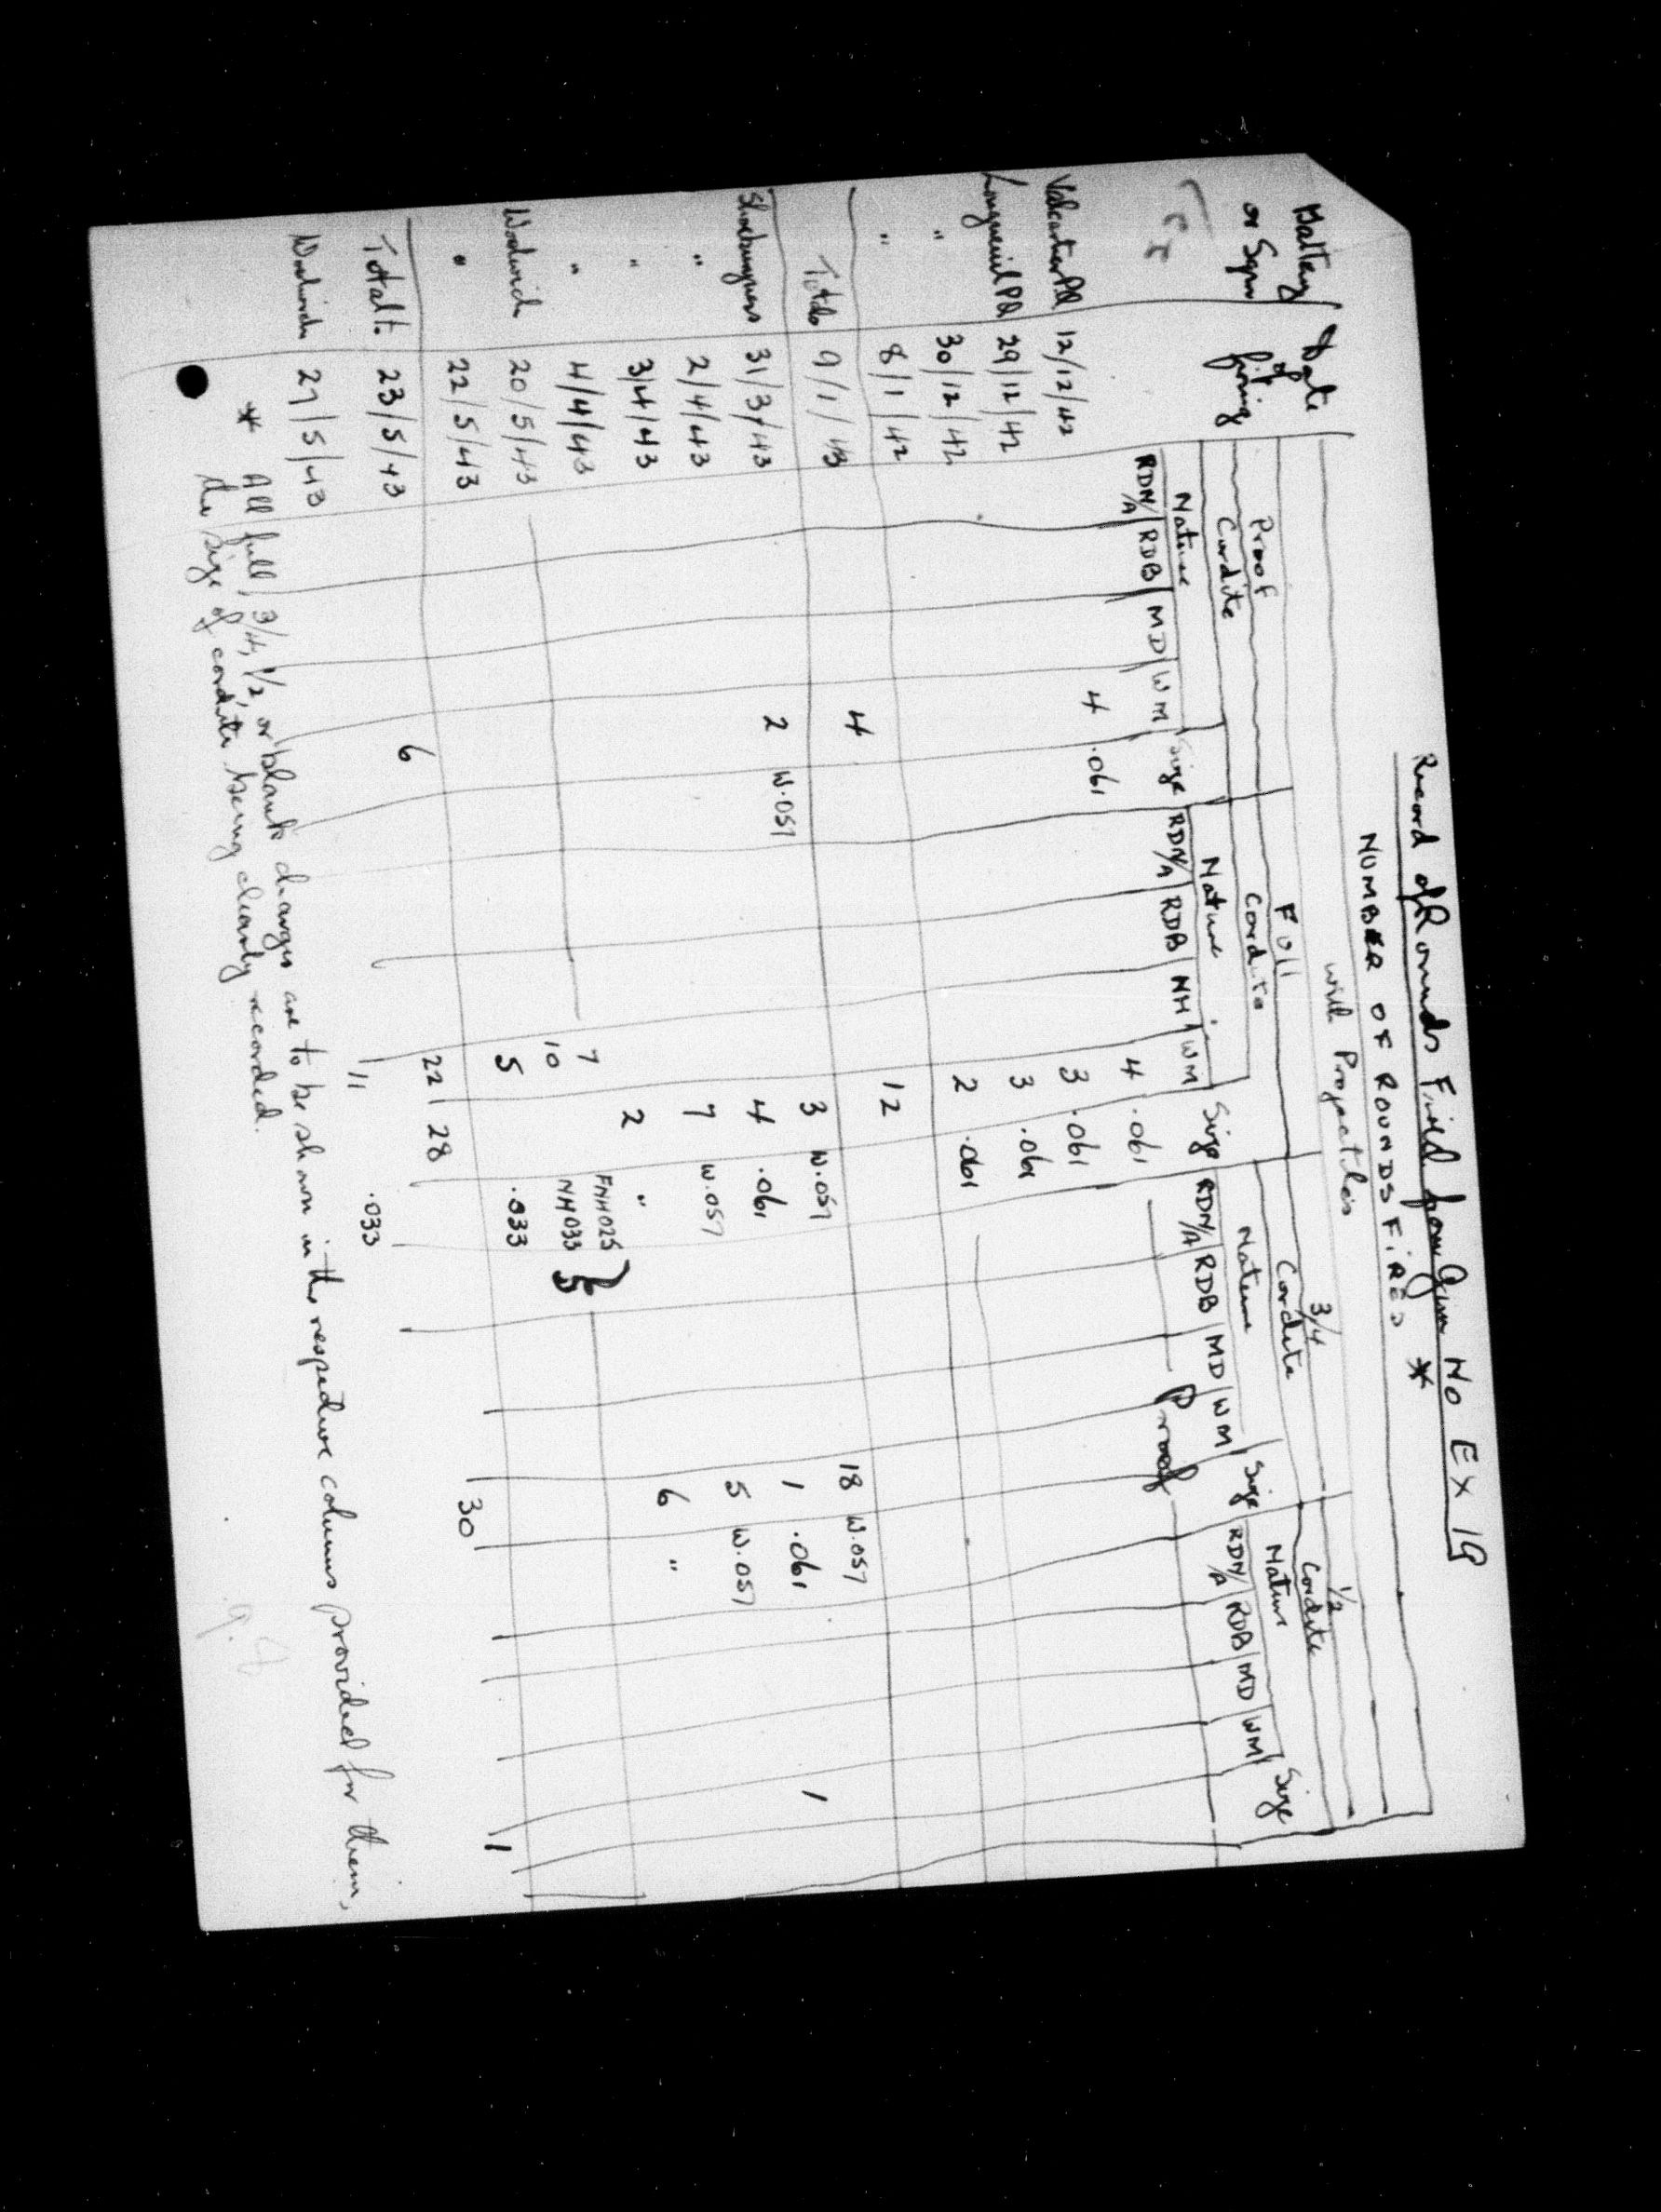 Record of Rounds Fired from Gun No EX 19
NUMBER OF ROUNDS FIRED *
with Projectiles
Battery or Sqn Date of firing Proof Cordite Full Cordite 3/4 Cordite 1/2 Cordite
Nature Nature Nature Nature
RDN/A RDB MD WM Size RDN/A RDB NH WM Size RDN/A RDB MD WM Size RDN/A RDB MD WM Size
Proof
Valcartier PQ 12/12/42 4 .061 4 .061
Longueuil PQ 29/12/42 3 .061
" 30/12/42 3 .061
" 8/1/42 2 .061
Totals 9/1/43 4 12
Shoeburyness 31/3/43 2 W.057 3 W.057 18 W.057
" 2/4/43 4 .061 1 .061 1
" 3/4/43 7 W.057 5 W.057
" 4/4/43 2 " 6 "
Woolwich 20/5/43 7 FNH025
10 NH033
" 22/5/43 5 .033
Total to 23/5/43 6 22 28 30 1
Woolwich 27/5/43 11 .033
* All full, 3/4, 1/2, or blank charges are to be shown in the respective columns provided for them,
the size of cordite being clearly recorded.